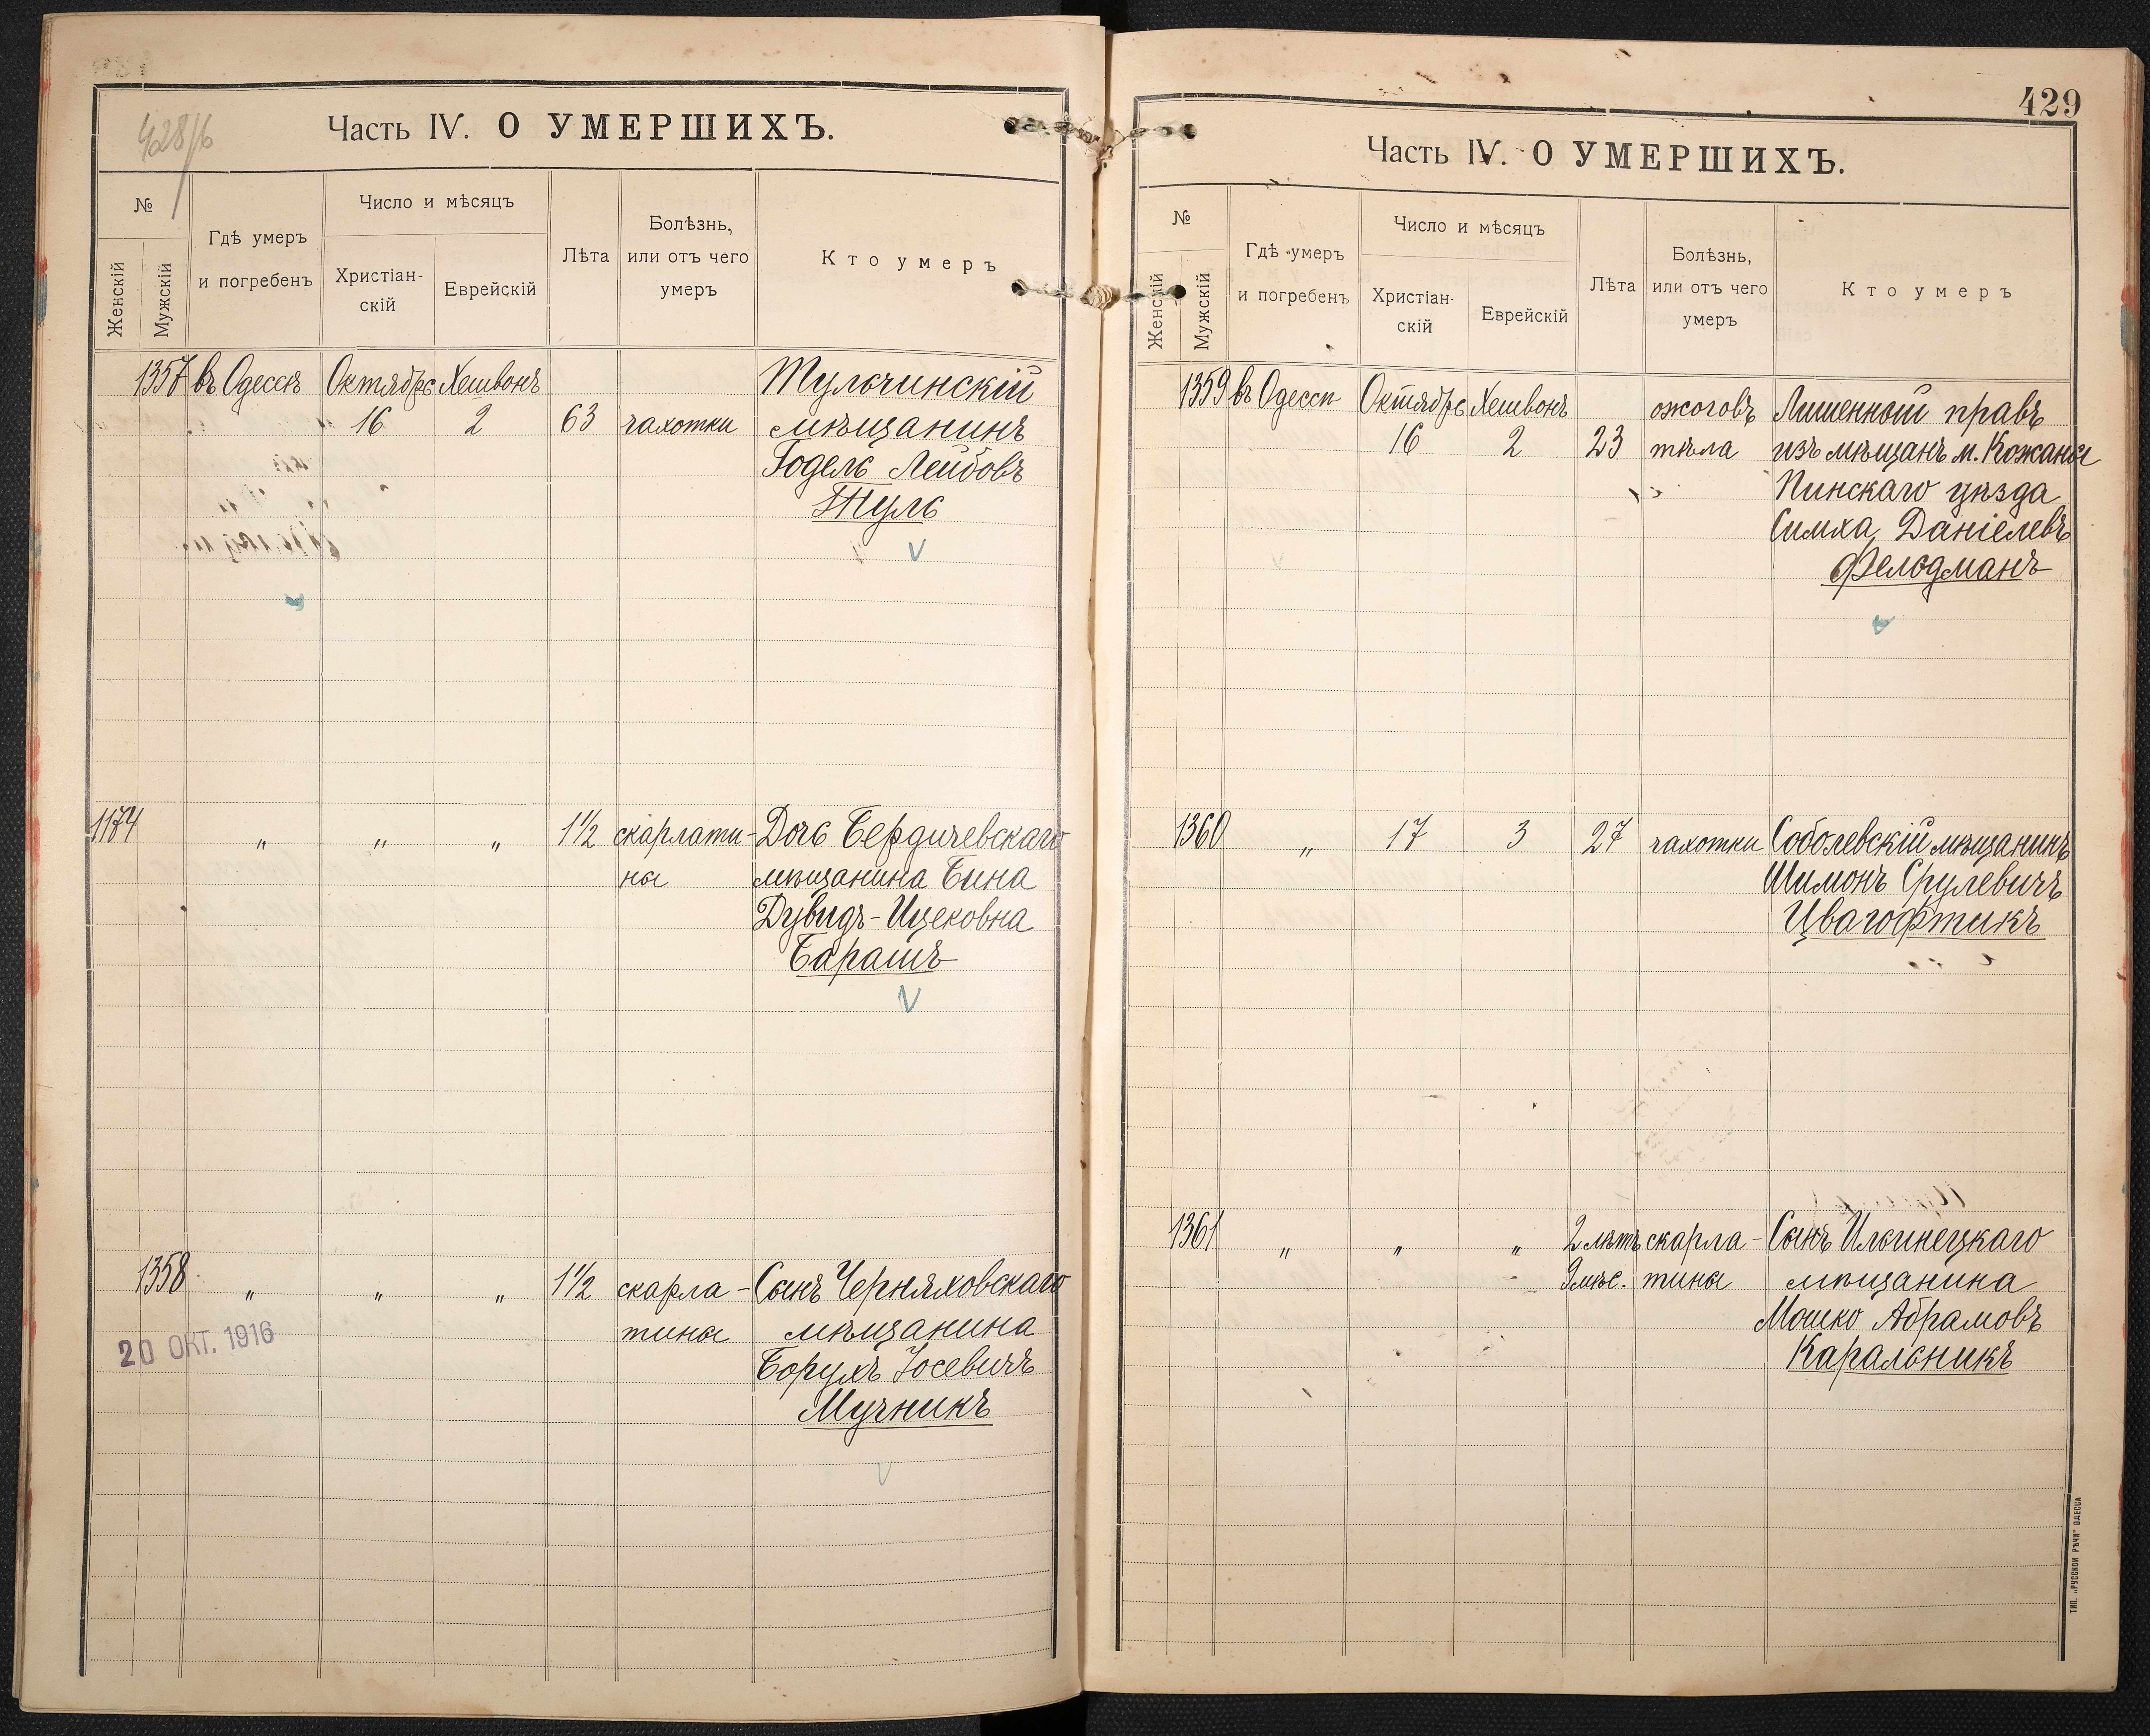 428/б
Часть IV. О УМЕРШИХЪ.
№
Женскій
Мужскій
Гдѣ умеръ
и погребенъ
Число и мѣсяцъ
Христіан-
скій
Еврейскій
Лѣта
Болѣзнь,
или отъ чего
умеръ
Кто умеръ
1357 въ Одессѣ Октябрь Хешвонъ Тульчинскій
16 2 63 чахотки мѣщанинъ
Годель Лейбовъ
Туль
1174 " " " 1½ скарлати- Дочь Бердичевскаго
ны мѣщанина Бина
Дувидъ-Ицековна
Барашъ
1358 " " " 1½ скарла- Сынъ Черняховскаго
тины мѣщанина
20 ОКТ. 1916
Борухъ Іосевичъ
Мучникъ
429
Часть IV. О УМЕРШИХЪ.
№
Женскій
Мужскій
Гдѣ умеръ
и погребенъ
Число и мѣсяцъ
Христіан-
скій
Еврейскій
Лѣта
Болѣзнь,
или отъ чего
умеръ
Кто умеръ
1359 въ Одессѣ Октябрь Хешвонъ ожоговъ Лишенный правъ
16 2 23 тѣла изъ мѣщанъ м. Кожаны
Пинскаго уѣзда
Симха Даніелевъ
Фельдманъ
1360 " 17 3 27 чахотки Соболевскій мѣщанинъ
Шимонъ Срулевичъ
Цвагофтикъ
1361 " " " 2 лѣтъ скарла- Сынъ Ильинецкаго
9 мѣс. тины мѣщанина
Мошко Абрамовъ
Каральникъ
ТИП. „РУССКОЙ РѢЧИ" ОДЕССА